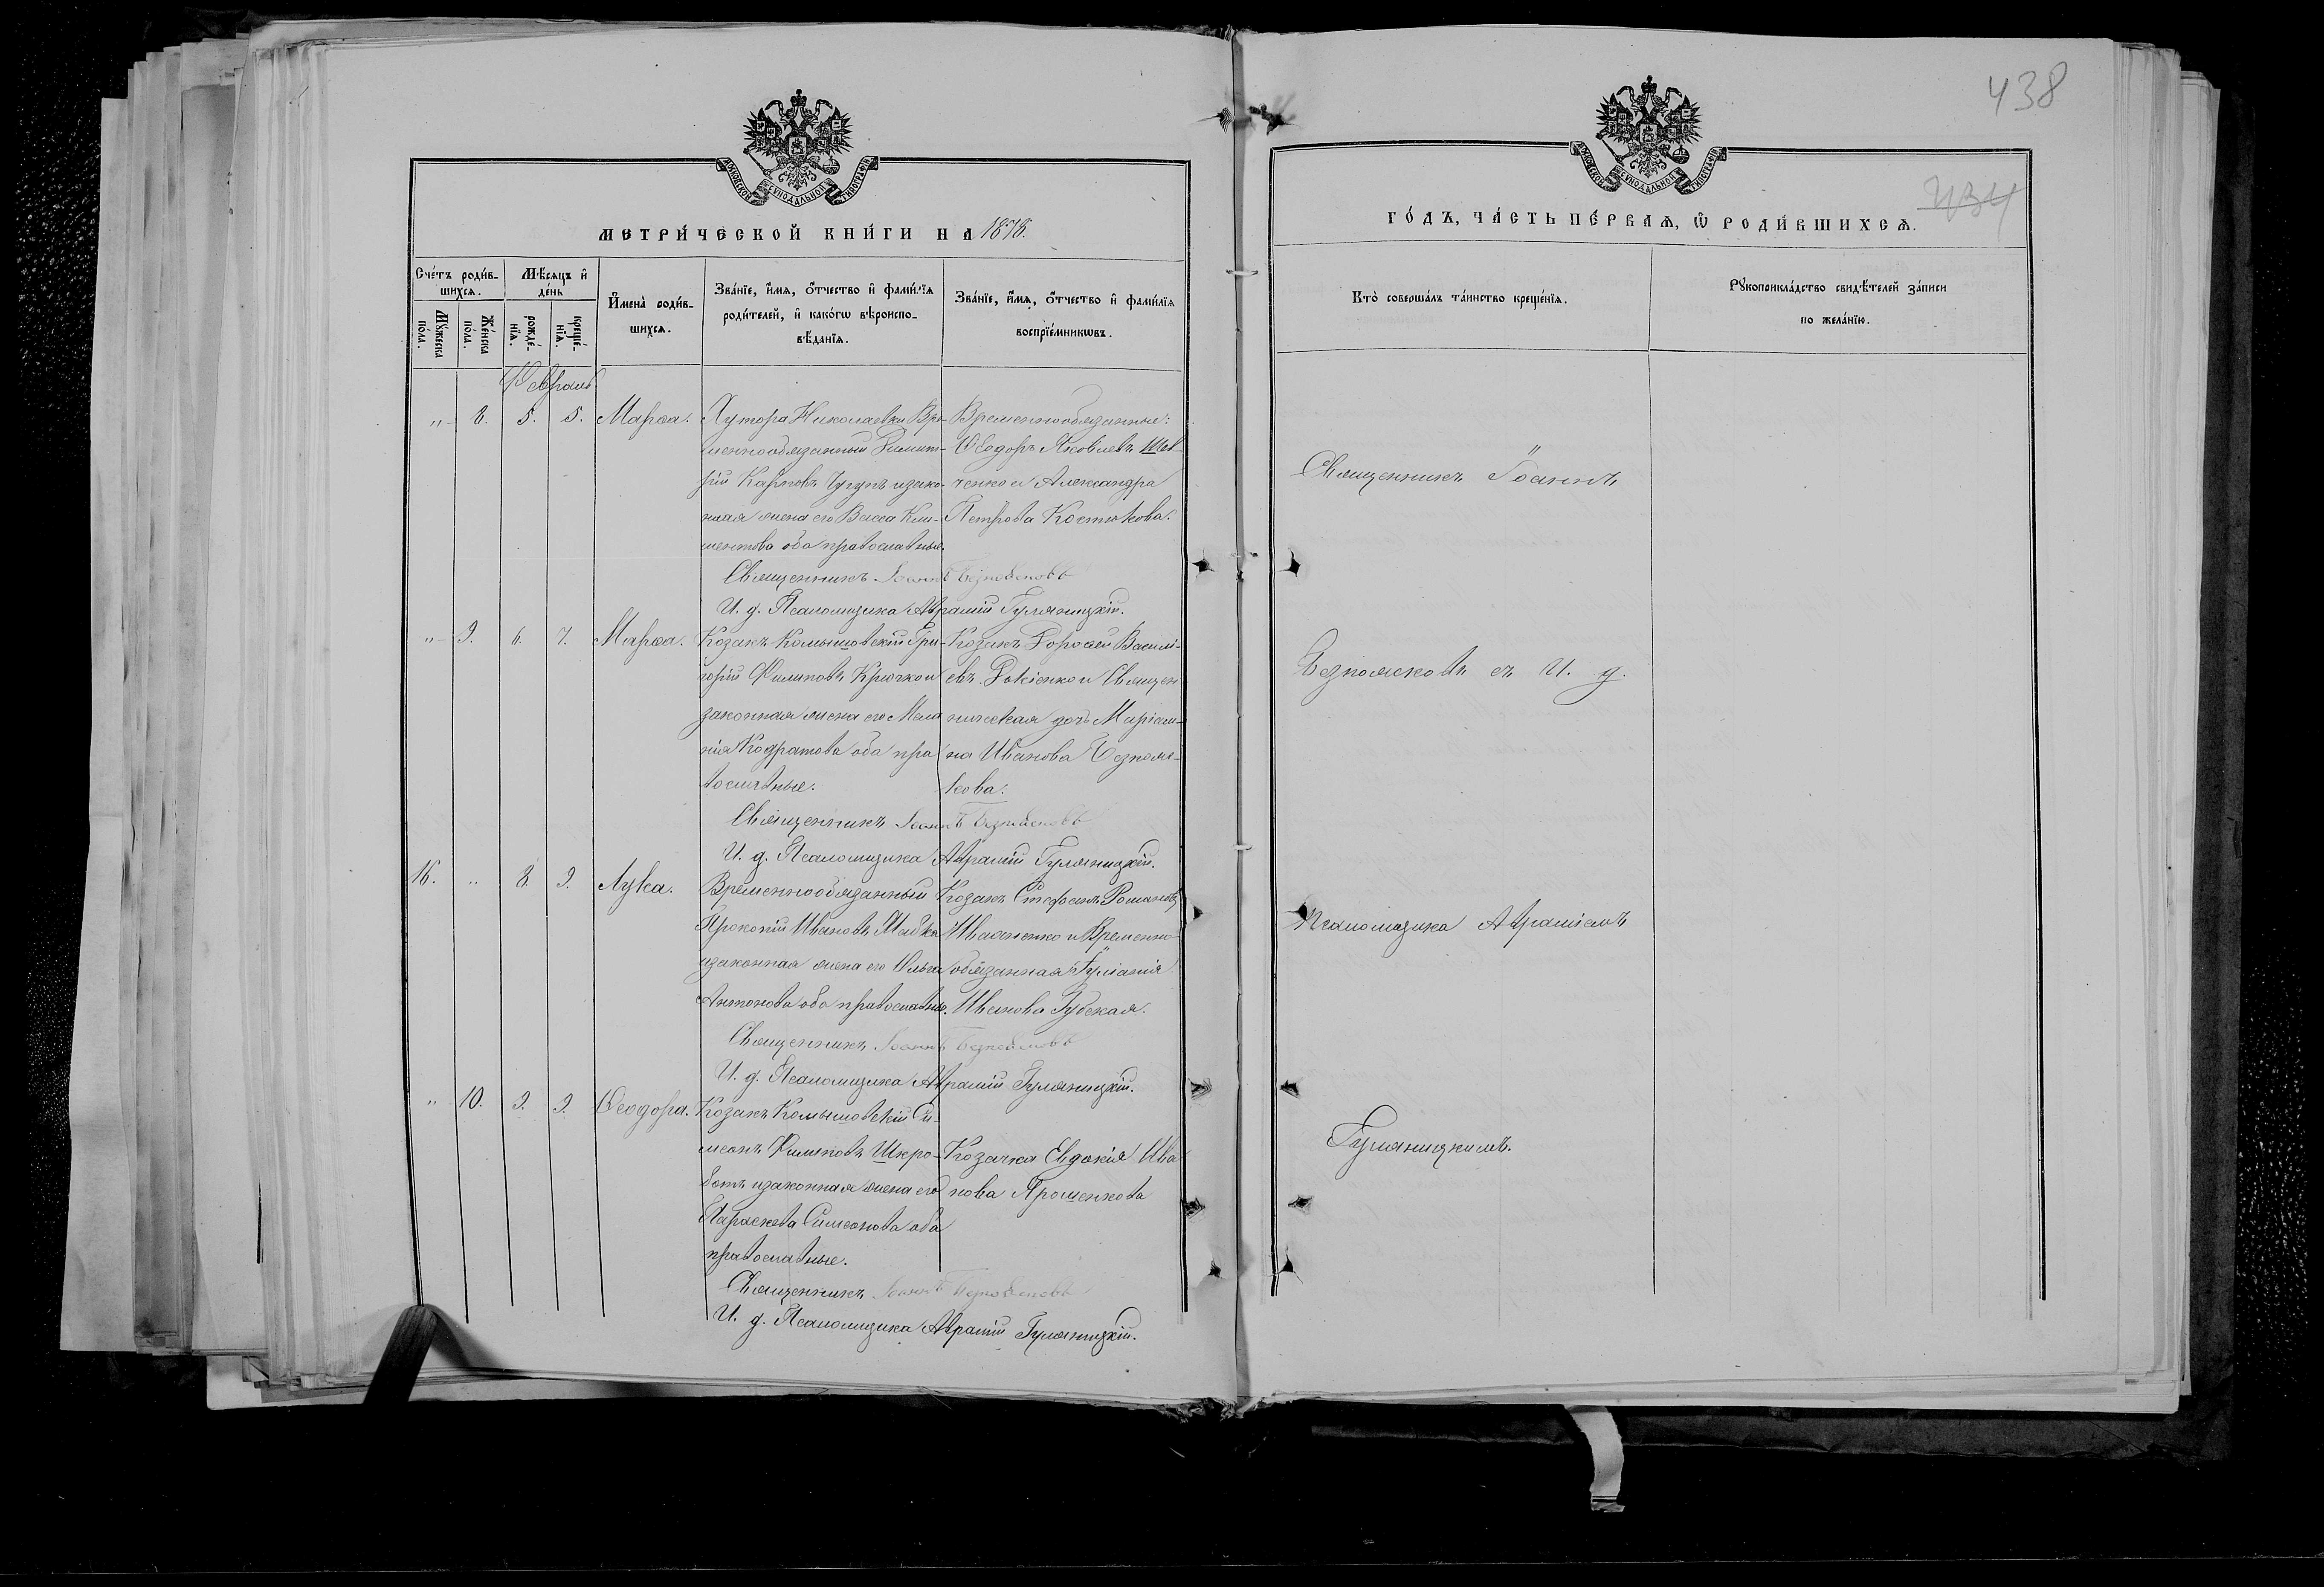 438
434
МОСКОВСКОЙ СУНОДАЛЬНОЙ ТИПОГРАФІИ
МЕТРИ́ЧЕСКОЙ КНИ́ГИ НА 1878.
Сче́тъ роди́вшихся.
Мѣ́сяцъ и҆ де́нь
И҆мена̀ роди́вшихся.
Зва́нїе, и҆́мя, ѻ҆́тчество и҆ фами́лїя
роди́телей, и҆ како́гѡ вѣ́роиспо-
вѣ́данїя.
Зва́нїе, и҆́мя, ѻ҆́тчество и҆ фами́лїя
воспрїе́мникѡвъ.
Мꙋ́жеска по́ла.
Же́нска по́ла.
рожде́нїя.
креще́нїя.
Февраль
" 8. 5. 5. Марѳа.
Хутора Николаевки Вре-
меннообязанный Димит-
рій Карповъ Чугуъ изако-
нная жена его Васса Кли-
ментова оба православные.
Временнообязанные:
Ѳеодоръ Яковлевъ Шев-
ченко и Александра
Петрова Костюкова.
Священникъ Іоаннъ Безпоясковъ
И. д. Псаломщика Аврамій Гуляницкій.
" 9. 6. 7. Марѳа.
Козакъ Комышовскій Гри-
горій Филиповъ Крючко и
законная жена его Мела
нія Кодратова оба пра
вославные.
Козакъ Дороѳей Василі-
евъ Рокіенко и Священ
ническая дочь Маріам-
на Иванова Безпояс-
кова.
Священникъ Іоаннъ Безпоясковъ
И. д. Псаломщика Аврамій Гуляницкій.
16. " 8. 9. Лука.
Временнообязанный
Прокопій Ивановъ Мабка
изаконная жена его Ольга
Антонова оба православные.
Козакъ Стефанъ Романовъ
Иваненко и Временно
обязанная Іуліанія
Иванова Губская.
Священникъ Іоаннъ Безпоясковъ
И. д. Псаломщика Аврамій Гуляницкій.
" 10. 9. 9. Ѳеодора.
Козакъ Комышовскій Си-
меонъ Филиповъ Шкро-
ботъ изаконная жена его
Параскева Симеонова оба
православные.
Козачка Евдокія Ива
нова Прошенкова
Священникъ Іоаннъ Безпоясковъ
И. д. Псаломщика Аврамій Гуляницкій.
МОСКОВСКОЙ СУНОДАЛЬНОЙ ТИПОГРАФІИ
ГО́ДЪ, ЧА́СТЬ ПЕ́РВАЯ, Ѡ҆ РОДИ́ВШИХСЯ.
Кто̀ соверша́лъ та́инство креще́нїя.
Рꙋкоприкла́дство свидѣ́телей за́писи
по жела́нїю.
Священникъ Іоаннъ
Безпоясковъ съ И. д.
Псаломщика Авраміемъ
Гуляницкимъ.